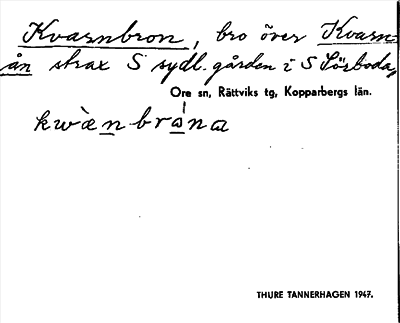 Kvarnbron, bro över Kvarn-
ån strax S sydl. gården i S Sörboda,
Ore sn, Rättviks tg, Kopparbergs län.
kwæ̀nbrána
THURE TANNERHAGEN 1947.